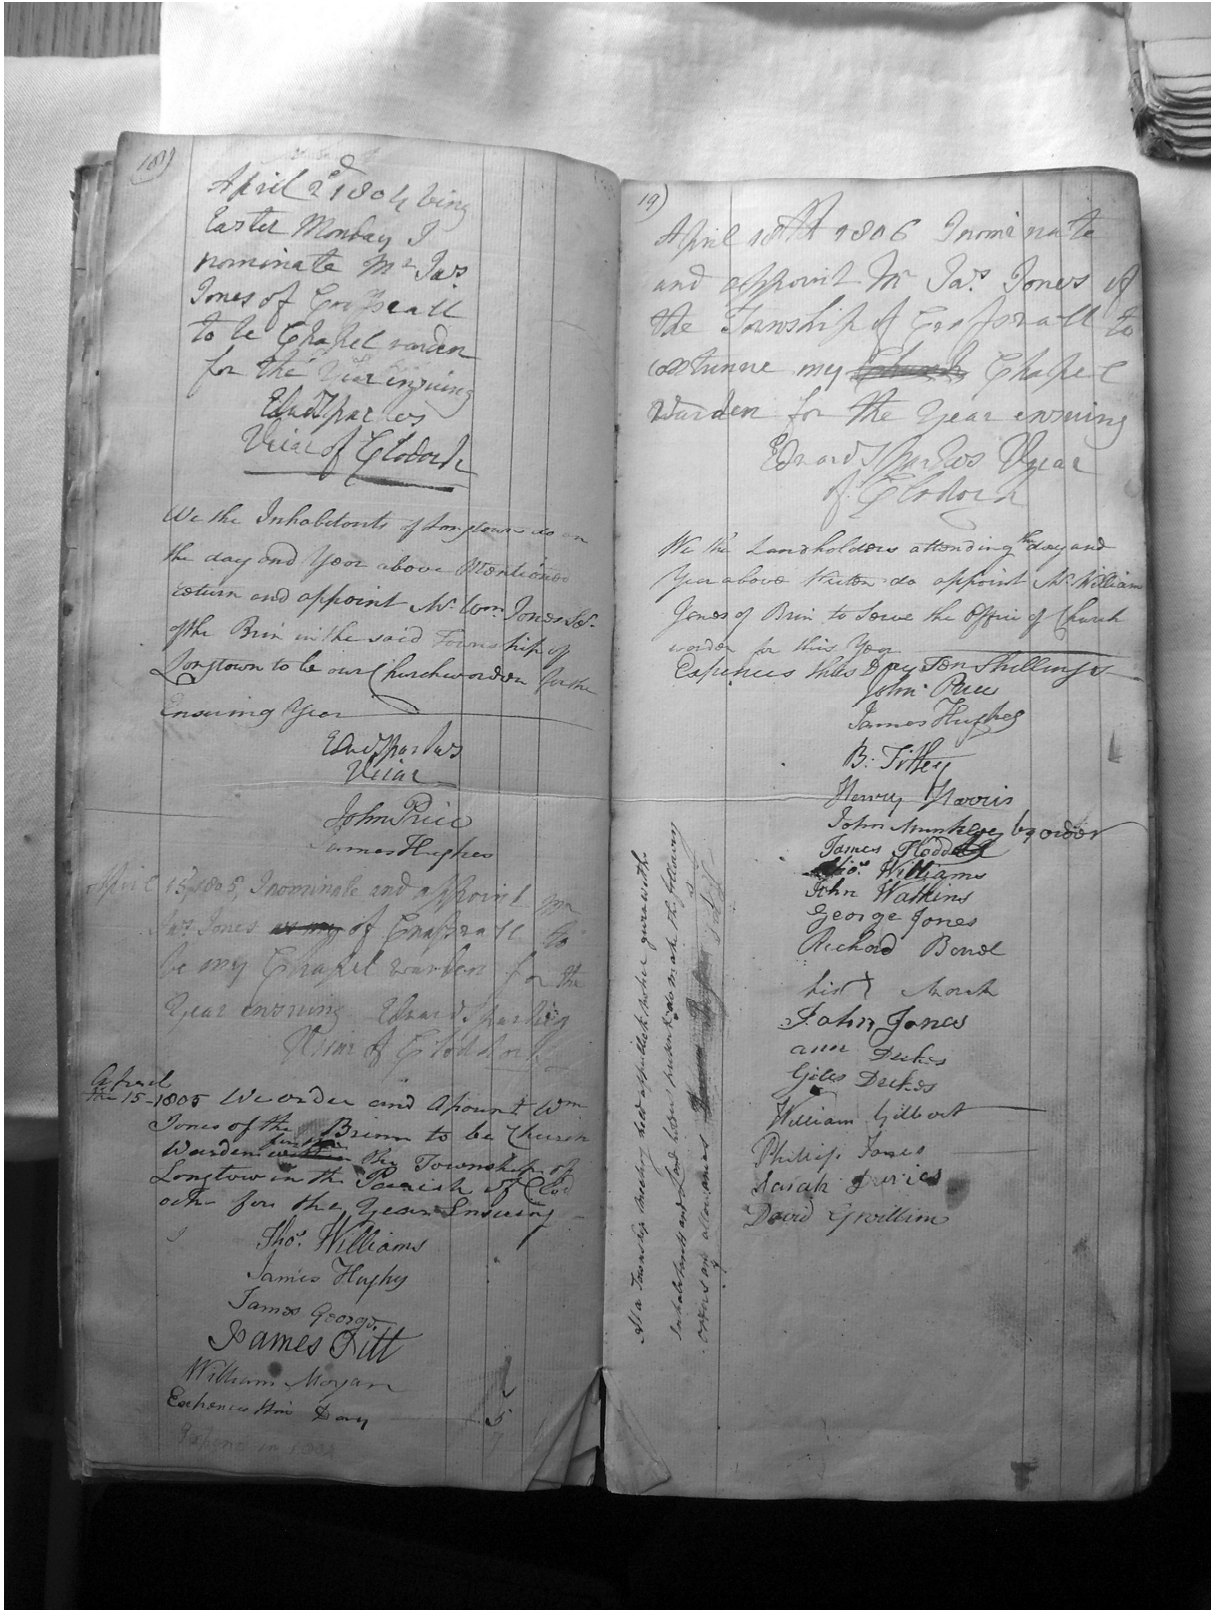 18)
April 2d 1804 being
Easter Monday I
nominate Mr Jas
Jones of Crosswall
to be Chapel warden
for the Year ensuing
Edwd Sparkes
Vicar of Clodock
We the Inhabitants of Longtown do on
the day and Year above Mentioned
return and appoint Mr Wm Jones
of the Brin in the said Township of
Longtown to be our Churchwarden for the
Ensuing Year
Edwd Sparkes
Vicar
John Price
James Hughes
April 15 1805 I nominate and appoint Mr
Jas Jones as my of Crasswall to
be my Chapel warden for the
Year ensuing Edward Sparkes
Vicar of Cloddock
April
the 15-1805 We order and Apount Wm
Jones of the Brinn to be Church
Warden for the Township of
Longtow in the Parish of Clod
ock for the Year Ensuing
Thos. Williams
James Hughes
James George
James Pitt
William Morgan
Exhences this Day 5
19)
April 1806 I nominate
and appoint Mr Jas. Jones of
the Township of Crosswall to
continue my Church Chapel
Warden for the Year ensuing
Edward Sparkes Vicar
of Clodock
We the Landholders attending the day and
Year above Written do appoint Mr. William
Jones of Brin to Serve the Office of Church
warden for this Year
Expences this Day Ten Shillings
John Price
James Hughes
B: Tilley
Henry Harris
John Munkley by order
James Flodd
Thos. Williams
John Watkins
George Jones
Richard Bond
his X Mark
John Jones
ann Dukes
Giles Dukes
William Gilbert
Phillip Jones
Sarah Davies
David Gwillim
At a Township meeting held
Inhabitants and Land holders present do make the following
allowances